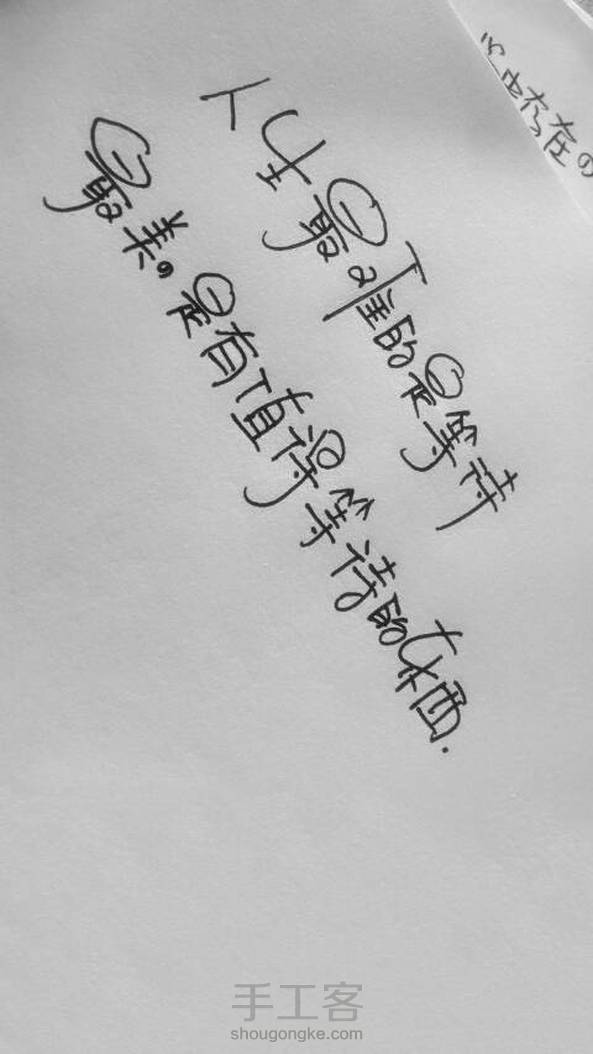 人生最难的是等待
最美。是有值得等待的东西.
存在の
手工客
shougongke.com